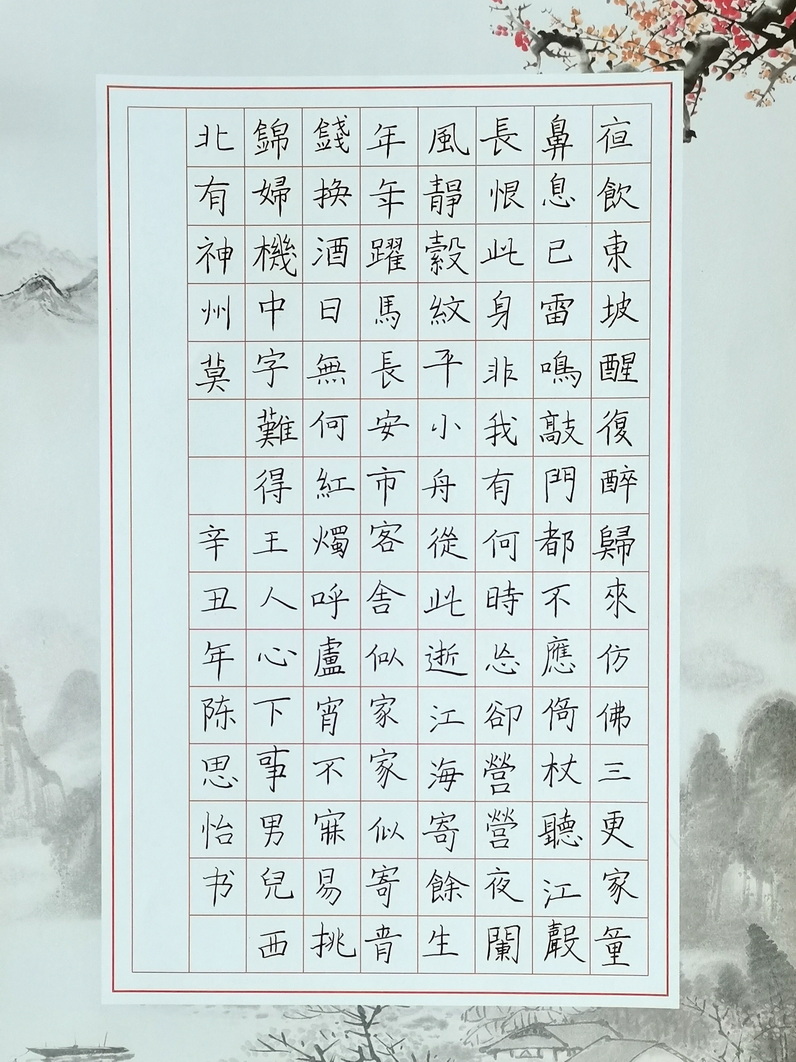 亱飲東坡醒復醉歸來仿佛三更家童
鼻息已雷鳴敲門都不應倚杖聽江聲
長恨此身非我有何時忘卻營營夜闌
風靜縠紋平小舟從此逝江海寄餘生
年年躍馬長安市客舍似家家似寄青
錢換酒日無何紅燭呼盧宵不寐易挑
錦婦機中字難得王人心下事男兒西
北有神州莫 辛丑年陈思怡书